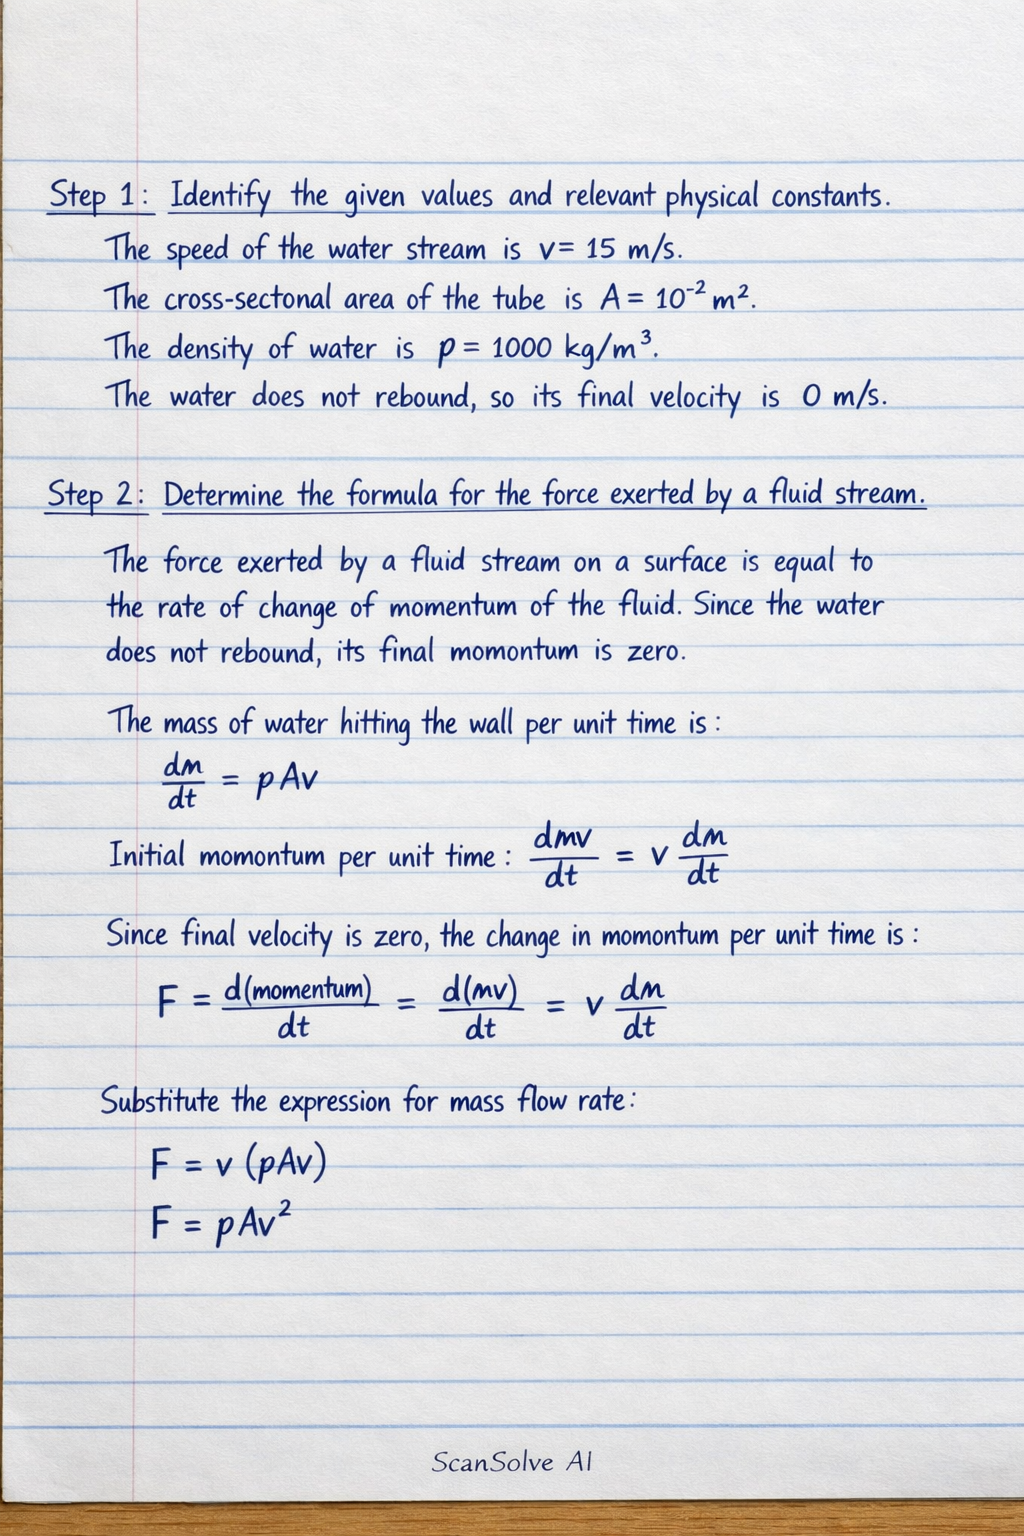 Step 1: Identify the given values and relevant physical constants.
The speed of the water stream is v = 15 m/s.
The cross-sectonal area of the tube is A = 10⁻² m².
The density of water is p = 1000 kg/m³.
The water does not rebound, so its final velocity is 0 m/s.
Step 2: Determine the formula for the force exerted by a fluid stream.
The force exerted by a fluid stream on a surface is equal to
the rate of change of momentum of the fluid. Since the water
does not rebound, its final momontum is zero.
The mass of water hitting the wall per unit time is:
dm/dt = pAv
Initial momontum per unit time: dmv/dt = v dm/dt
Since final velocity is zero, the change in momontum per unit time is:
F = d(momentum)/dt = d(mv)/dt = v dm/dt
Substitute the expression for mass flow rate:
F = v (pAv)
F = pAv²
ScanSolve AI